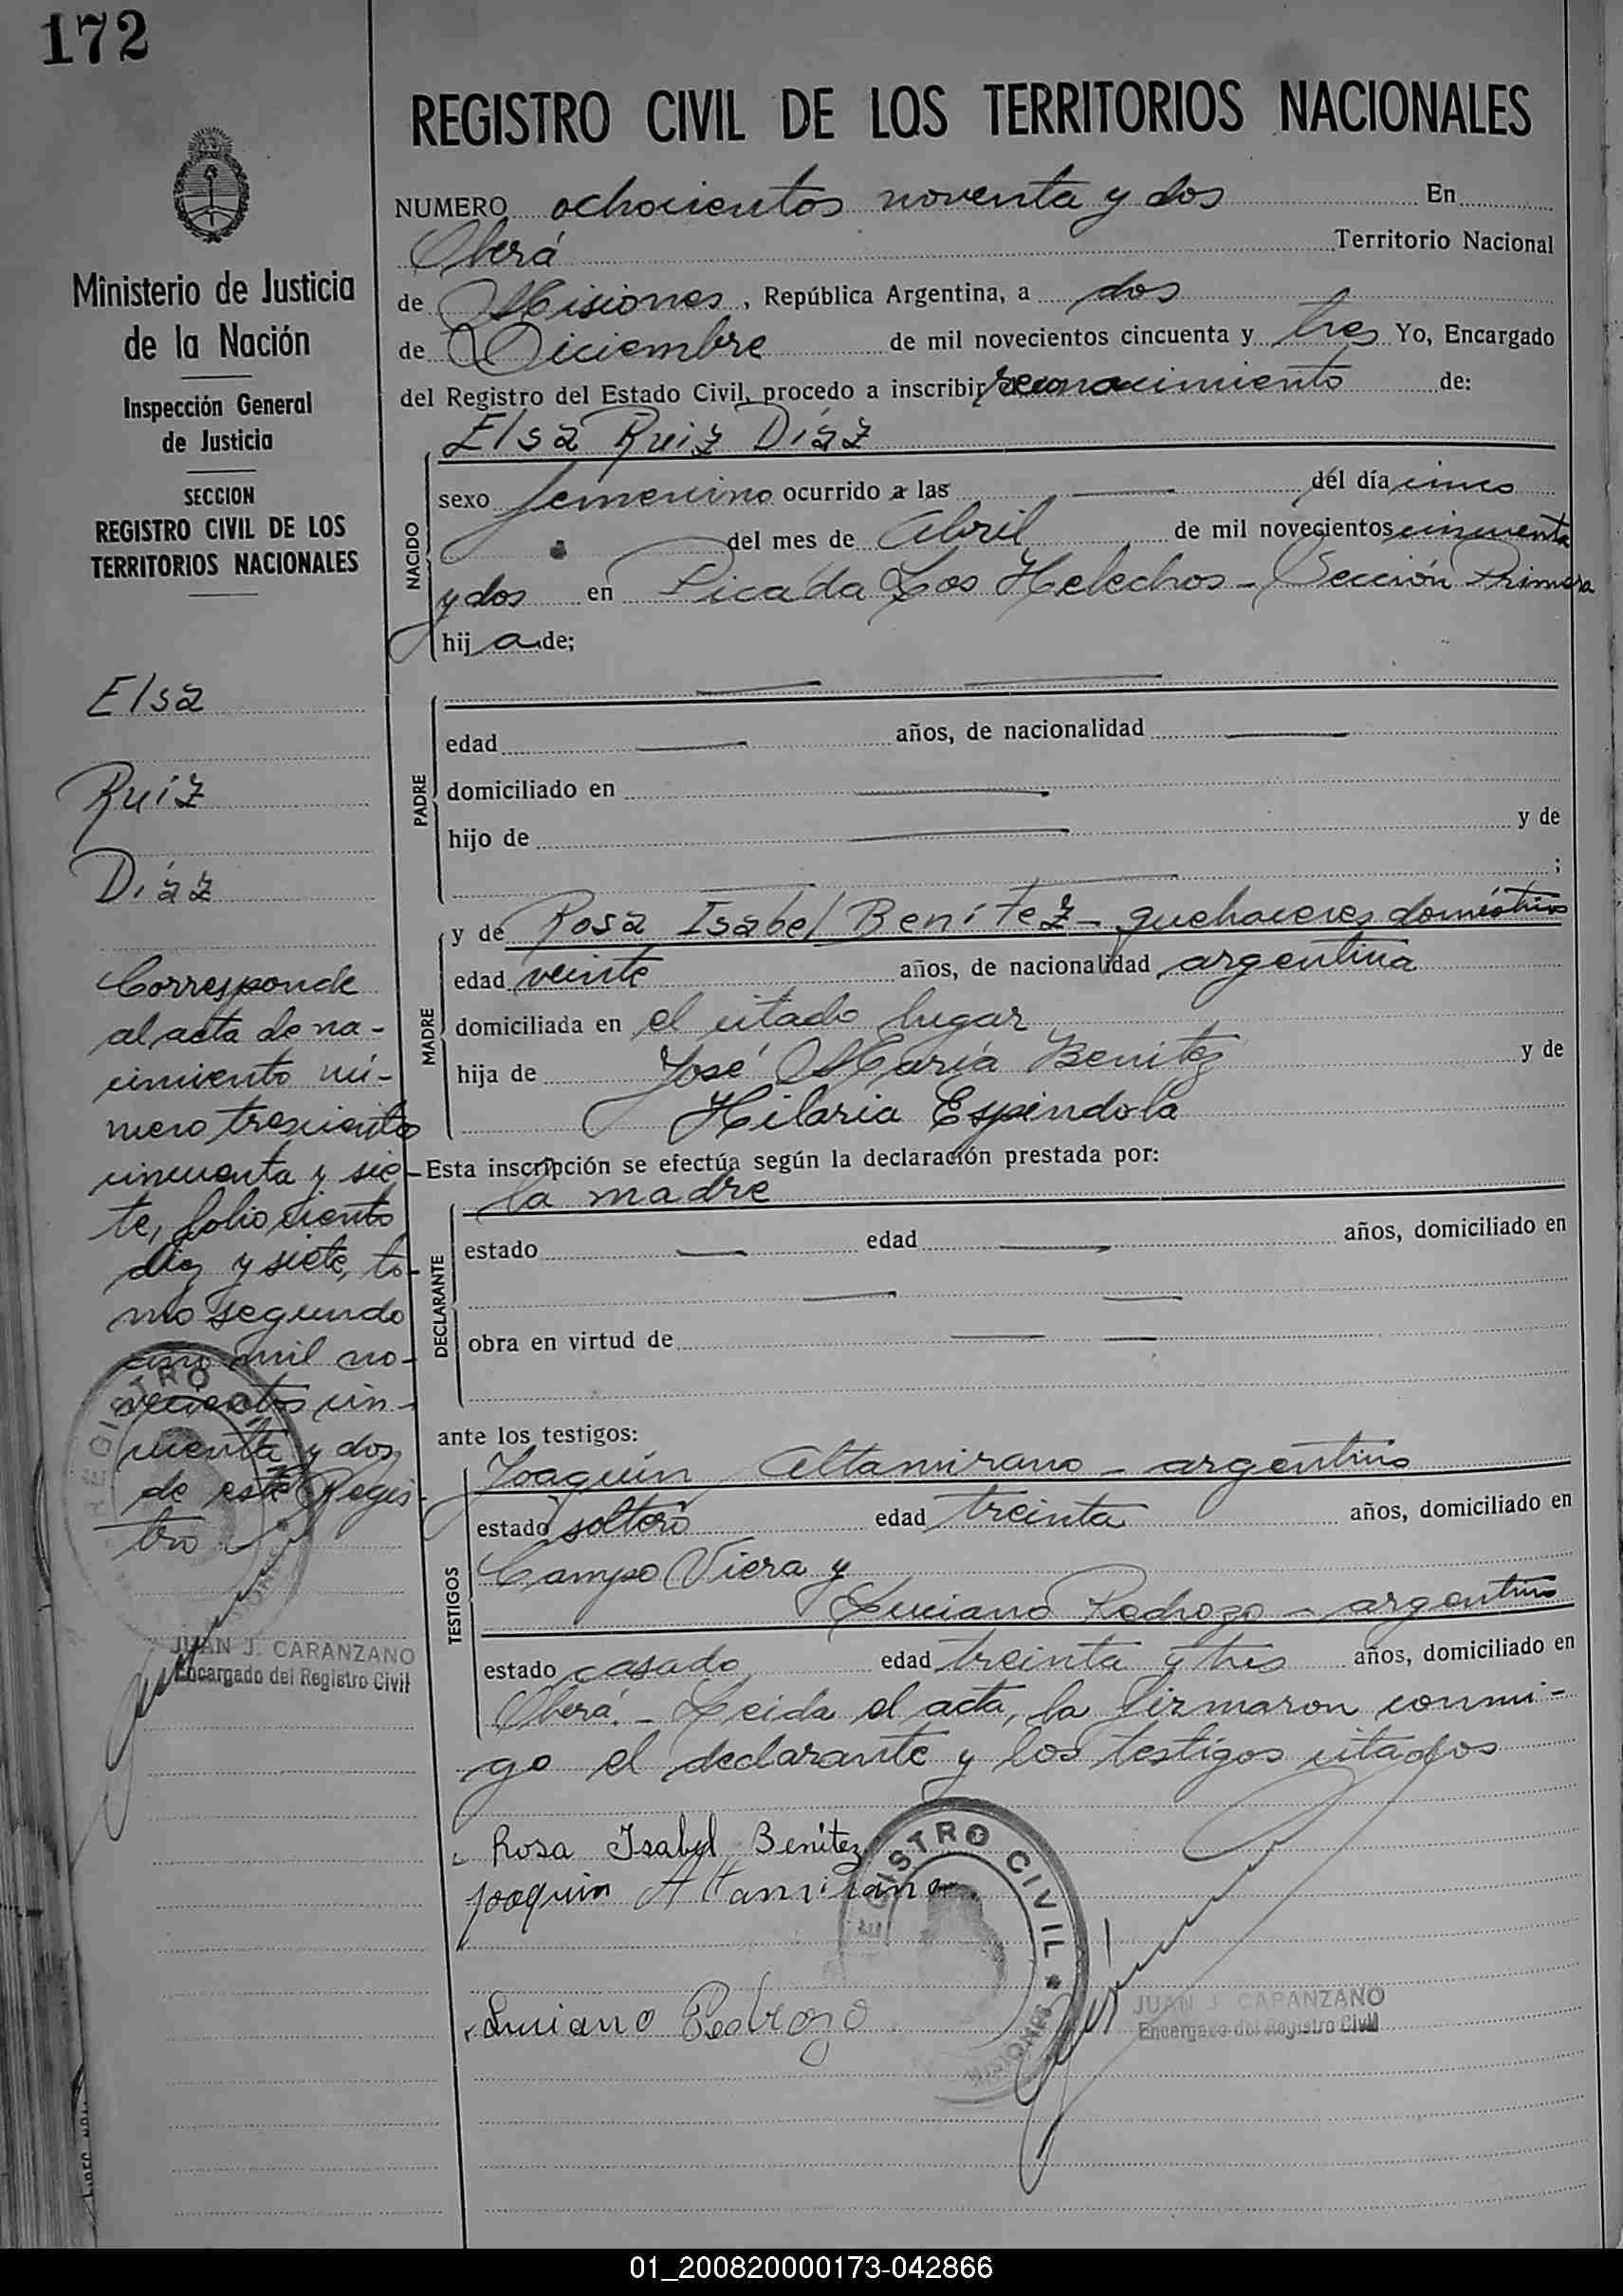 172
REGISTRO CIVIL DE LOS TERRITORIOS NACIONALES
Ministerio de Justicia
de la Nación
Inspección General
de Justicia
SECCION
REGISTRO CIVIL DE LOS
TERRITORIOS NACIONALES
Elsa
Ruiz
Díaz
Corresponde
al acta de na-
cimiento nú-
mero trescientos
cincuenta y sie-
te, folio ciento
diez y siete, to-
mo segundo
año mil no-
vecientos cin-
cuenta y dos
de este Regis-
tro
REGISTRO
JUAN J. CARANZANO
Encargado del Registro Civil
NUMERO ochocientos noventa y dos En
Oberá Territorio Nacional
de Misiones, República Argentina, a dos
de Diciembre de mil novecientos cincuenta y tres Yo, Encargado
del Registro del Estado Civil, procedo a inscribir reconocimiento de:
Elsa Ruiz Díaz
NACIDO
sexo femenino ocurrido a las del día cinco
del mes de Abril de mil novecientos cincuenta
y dos en Picada Los Helechos - Sección Primera
hija de;
PADRE
edad años, de nacionalidad
domiciliado en
hijo de y de
;
MADRE
y de Rosa Isabel Benítez - quehaceres domésticos
edad veinte años, de nacionalidad argentina
domiciliada en el citado lugar
hija de José María Benítez y de
Hilaria Espíndola
Esta inscripción se efectúa según la declaración prestada por:
la madre
DECLARANTE
estado edad años, domiciliado en
obra en virtud de
ante los testigos:
TESTIGOS
Joaquín Altamirano - argentino
estado soltero edad treinta años, domiciliado en
Campo Viera y
Luciano Pedrozo - argentino
estado casado edad treinta y tres años, domiciliado en
Oberá. - Leida el acta, la firmaron conmi-
go el declarante y los testigos citados
Rosa Isabel Benítez
Joaquin Altamirano
REGISTRO CIVIL
MISIONES
Luciano Pedrozo
JUAN J. CARANZANO
Encargado del Registro Civil
01_200820000173-042866